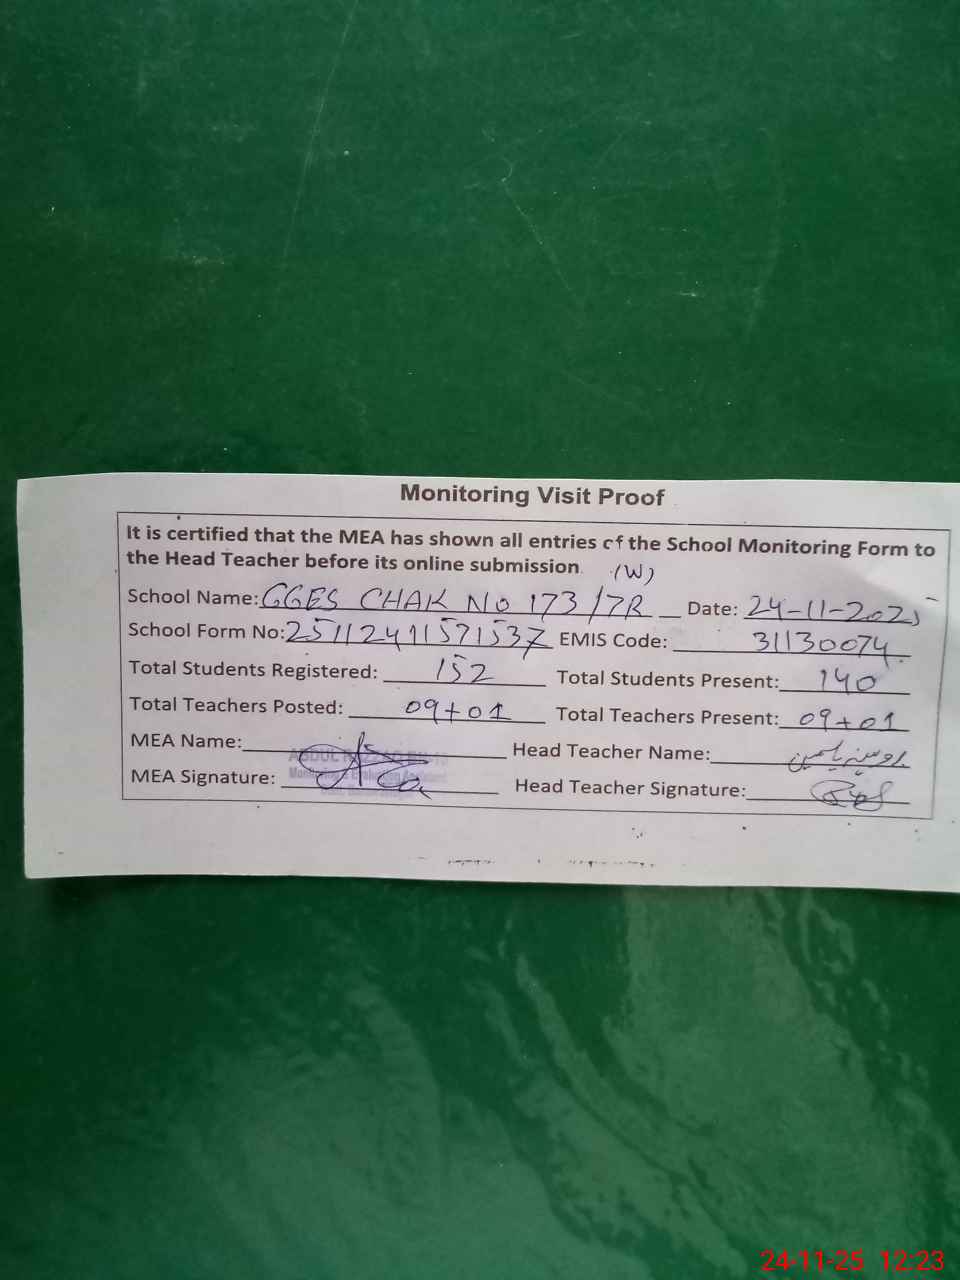 Monitoring Visit Proof
It is certified that the MEA has shown all entries of the School Monitoring Form to
the Head Teacher before its online submission
(W)
School Name: GGES CHAK No 173/7R Date: 24-11-2025
School Form No: 25112411571537 EMIS Code: 31130074
Total Students Registered: 152 Total Students Present: 140
Total Teachers Posted: 09+01 Total Teachers Present: 09+01
MEA Name: ABDUL RAZZAQ Head Teacher Name: یاسمین
Monitoring & Evaluation Assistant
MEA Signature: Head Teacher Signature:
24-11-25 12:23